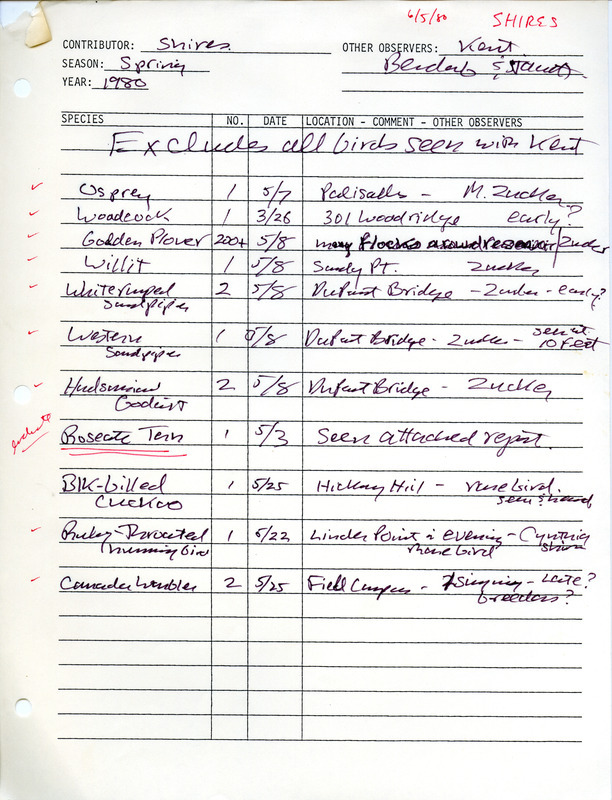 6/5/80 SHIRES
CONTRIBUTOR: Shires OTHER OBSERVERS: Kent
SEASON: Spring
YEAR: 1980
SPECIES NO. DATE LOCATION - COMMENT - OTHER OBSERVERS
Excludes all birds seen with Kent
Osprey 1 5/7 Palisades - M. Zucker
Woodcock 1 3/26 301 Woodridge early?
Golden Plover 200+ 5/8 many flocks around reservoir Zucker
Willit 1 5/8 Sandy Pt. Zucker
Whiterumped 2 5/8 DuPont Bridge - Zucker - early?
Sandpiper
Western 1 5/8 DuPont Bridge - Zucker - seen at
Sandpiper 10 feet
Hudsonian 2 5/8 DuPont Bridge - Zucker
Godwit
evaluate Roseate Tern 1 5/3 Seen attached report.
Blk-billed 1 5/25 Hickory Hill - rare bird.
Cuckoo seen & heard
Ruby-Throated 1 5/22 Linder Point in evening - Cynthia
Humming Bird rare bird Shires
Canada Warbler 2 5/25 Field Campus - singing - Late?
breeders?